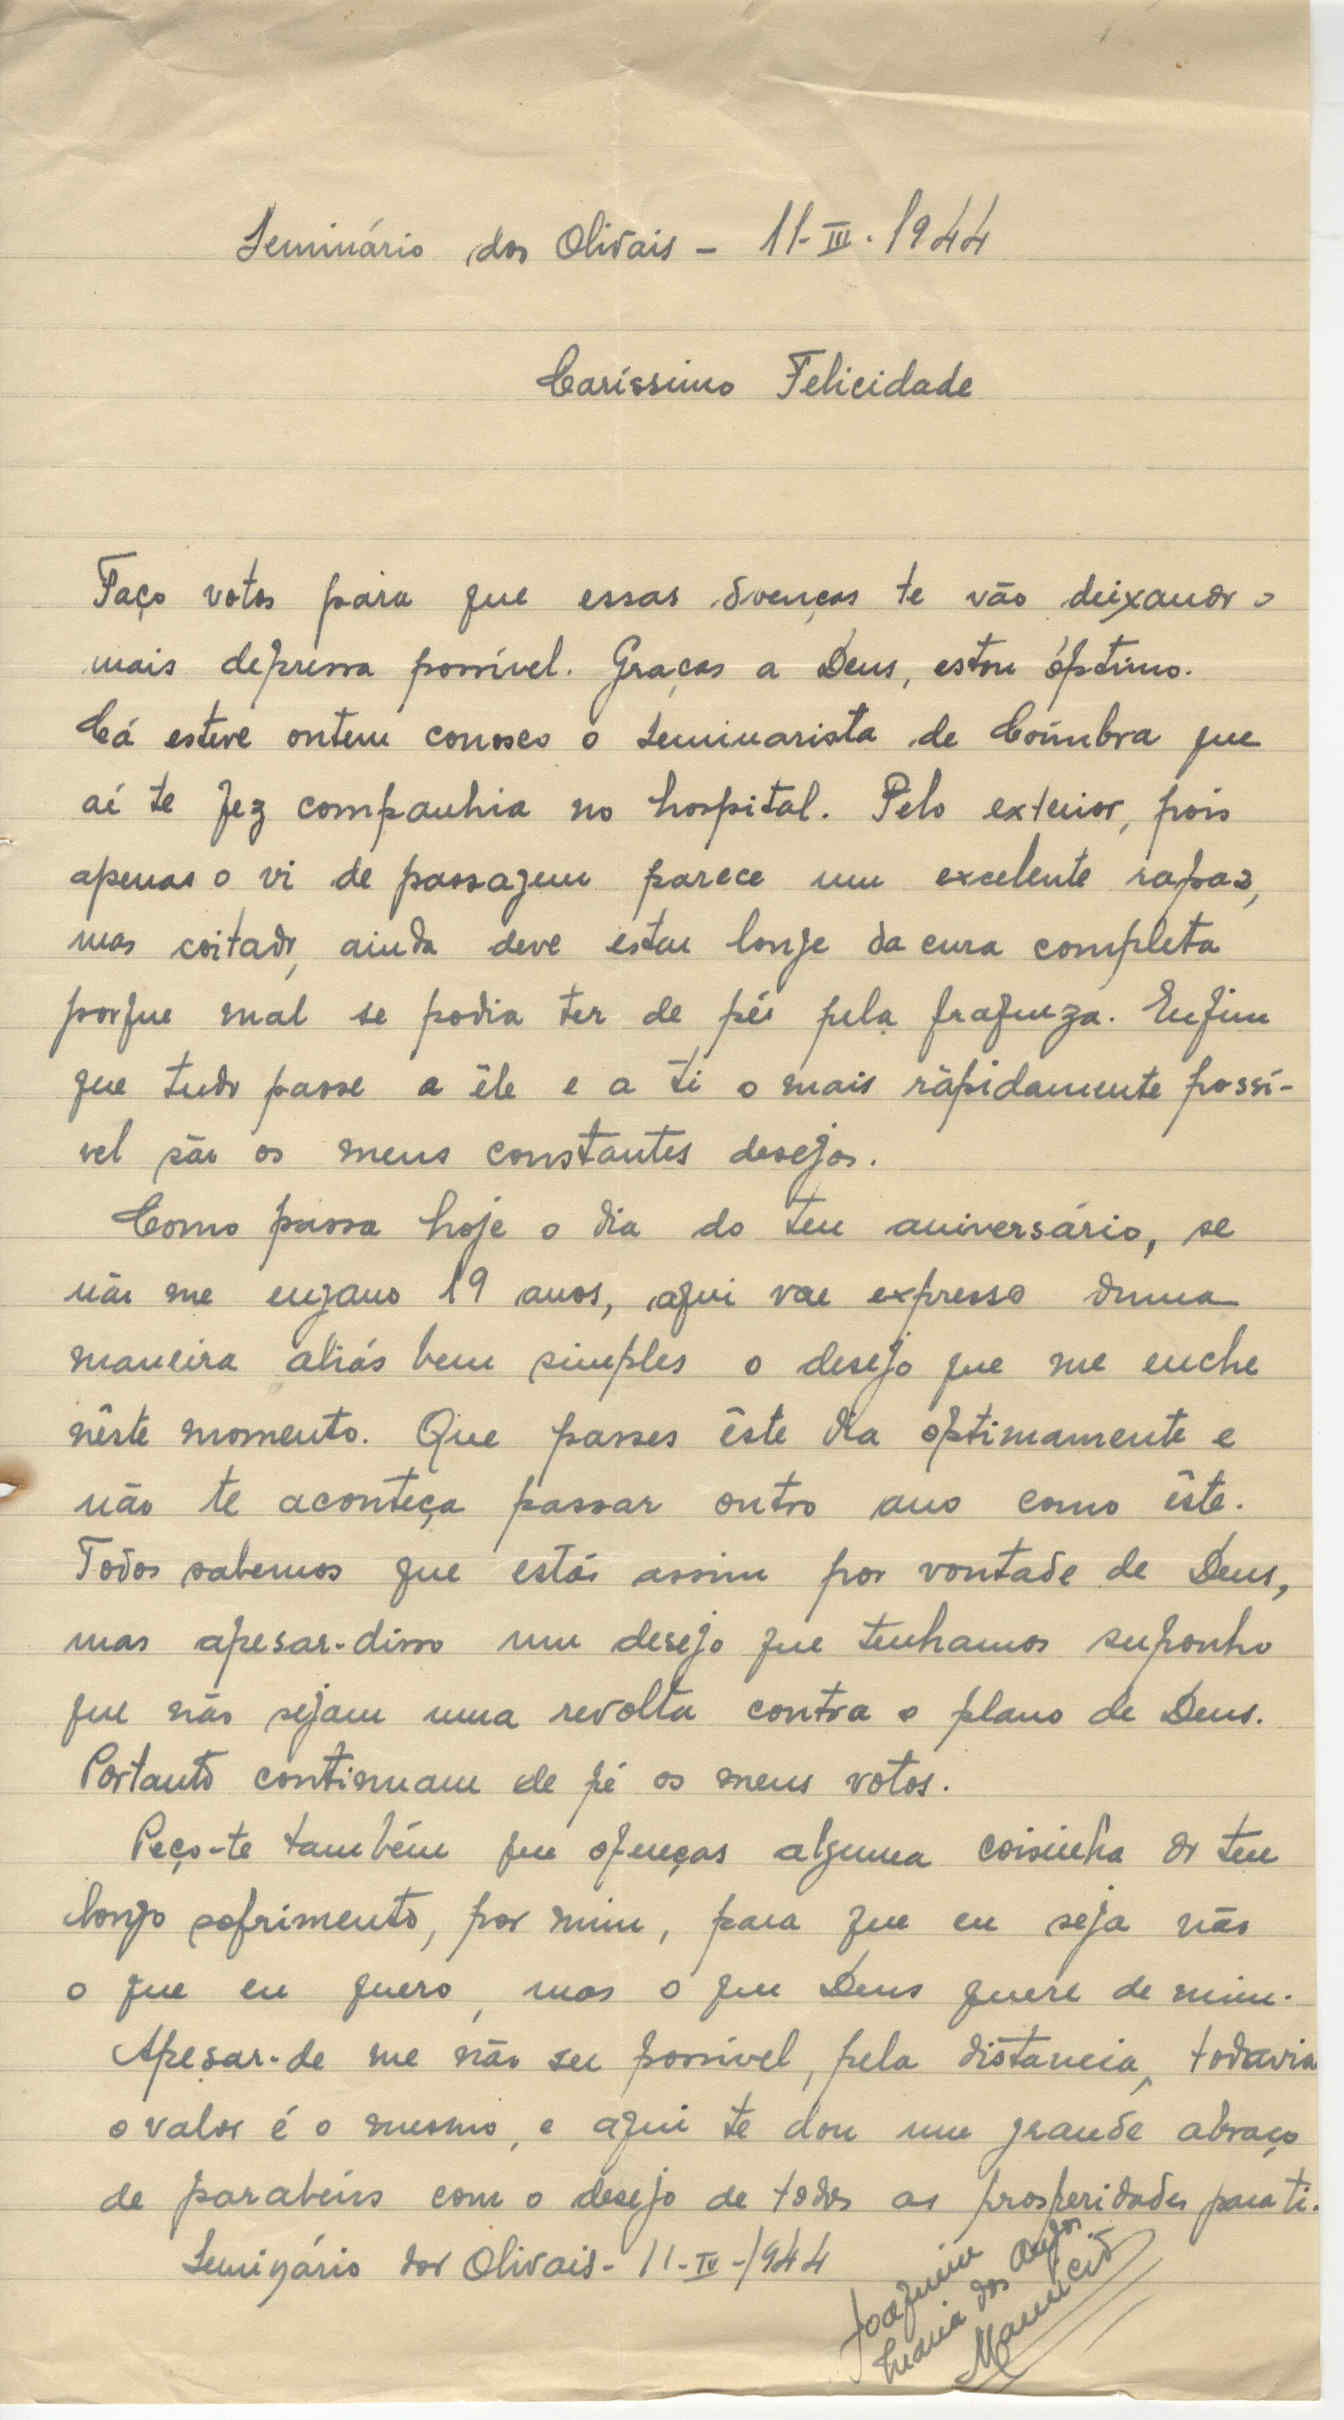 Seminário dos Olivais - 11-III-1944
Caríssimo Felicidade
Faço votos para que essas doenças te vão deixando o
mais depressa possível. Graças a Deus, estou óptimo.
Cá esteve ontem conosco o seminarista de Coímbra que
aí te fez companhia no hospital. Pelo exterior, pois
apenas o vi de passagem parece um excelente rapaz,
mas coitado, ainda deve estar longe da cura completa
porque mal se podia ter de pés pela fraqueza. Enfim
que tudo passe a êle e a ti o mais ràpidamente possí-
vel são os meus constantes desejos.
Como passa hoje o dia do teu aniversário, se
não me engano 19 anos, aqui vae expresso duma
maneira aliás bem simples o desejo que me enche
nêste momento. Que passes êste dia optimamente e
não te aconteça passar outro ano como êste.
Todos sabemos que estás assim por vontade de Deus,
mas apesar-disso um desejo que tenhamos suponho
que não sejam uma revolta contra o plano de Deus.
Portanto continuam de pé os meus votos.
Peço-te também que ofereças alguma coisinha do teu
longo sofrimento, por mim, para que eu seja não
o que eu quero, mas o que Deus quere de mim.
Apesar-de me não ser possível, pela distancia, todavia
o valor é o mesmo, e aqui te dou um grande abraço
de parabéns com o desejo de todas as prosperidades para ti.
Seminário dos Olivais - 11-IV-1944
Joaquim
Maria dos Anjos
Maurício